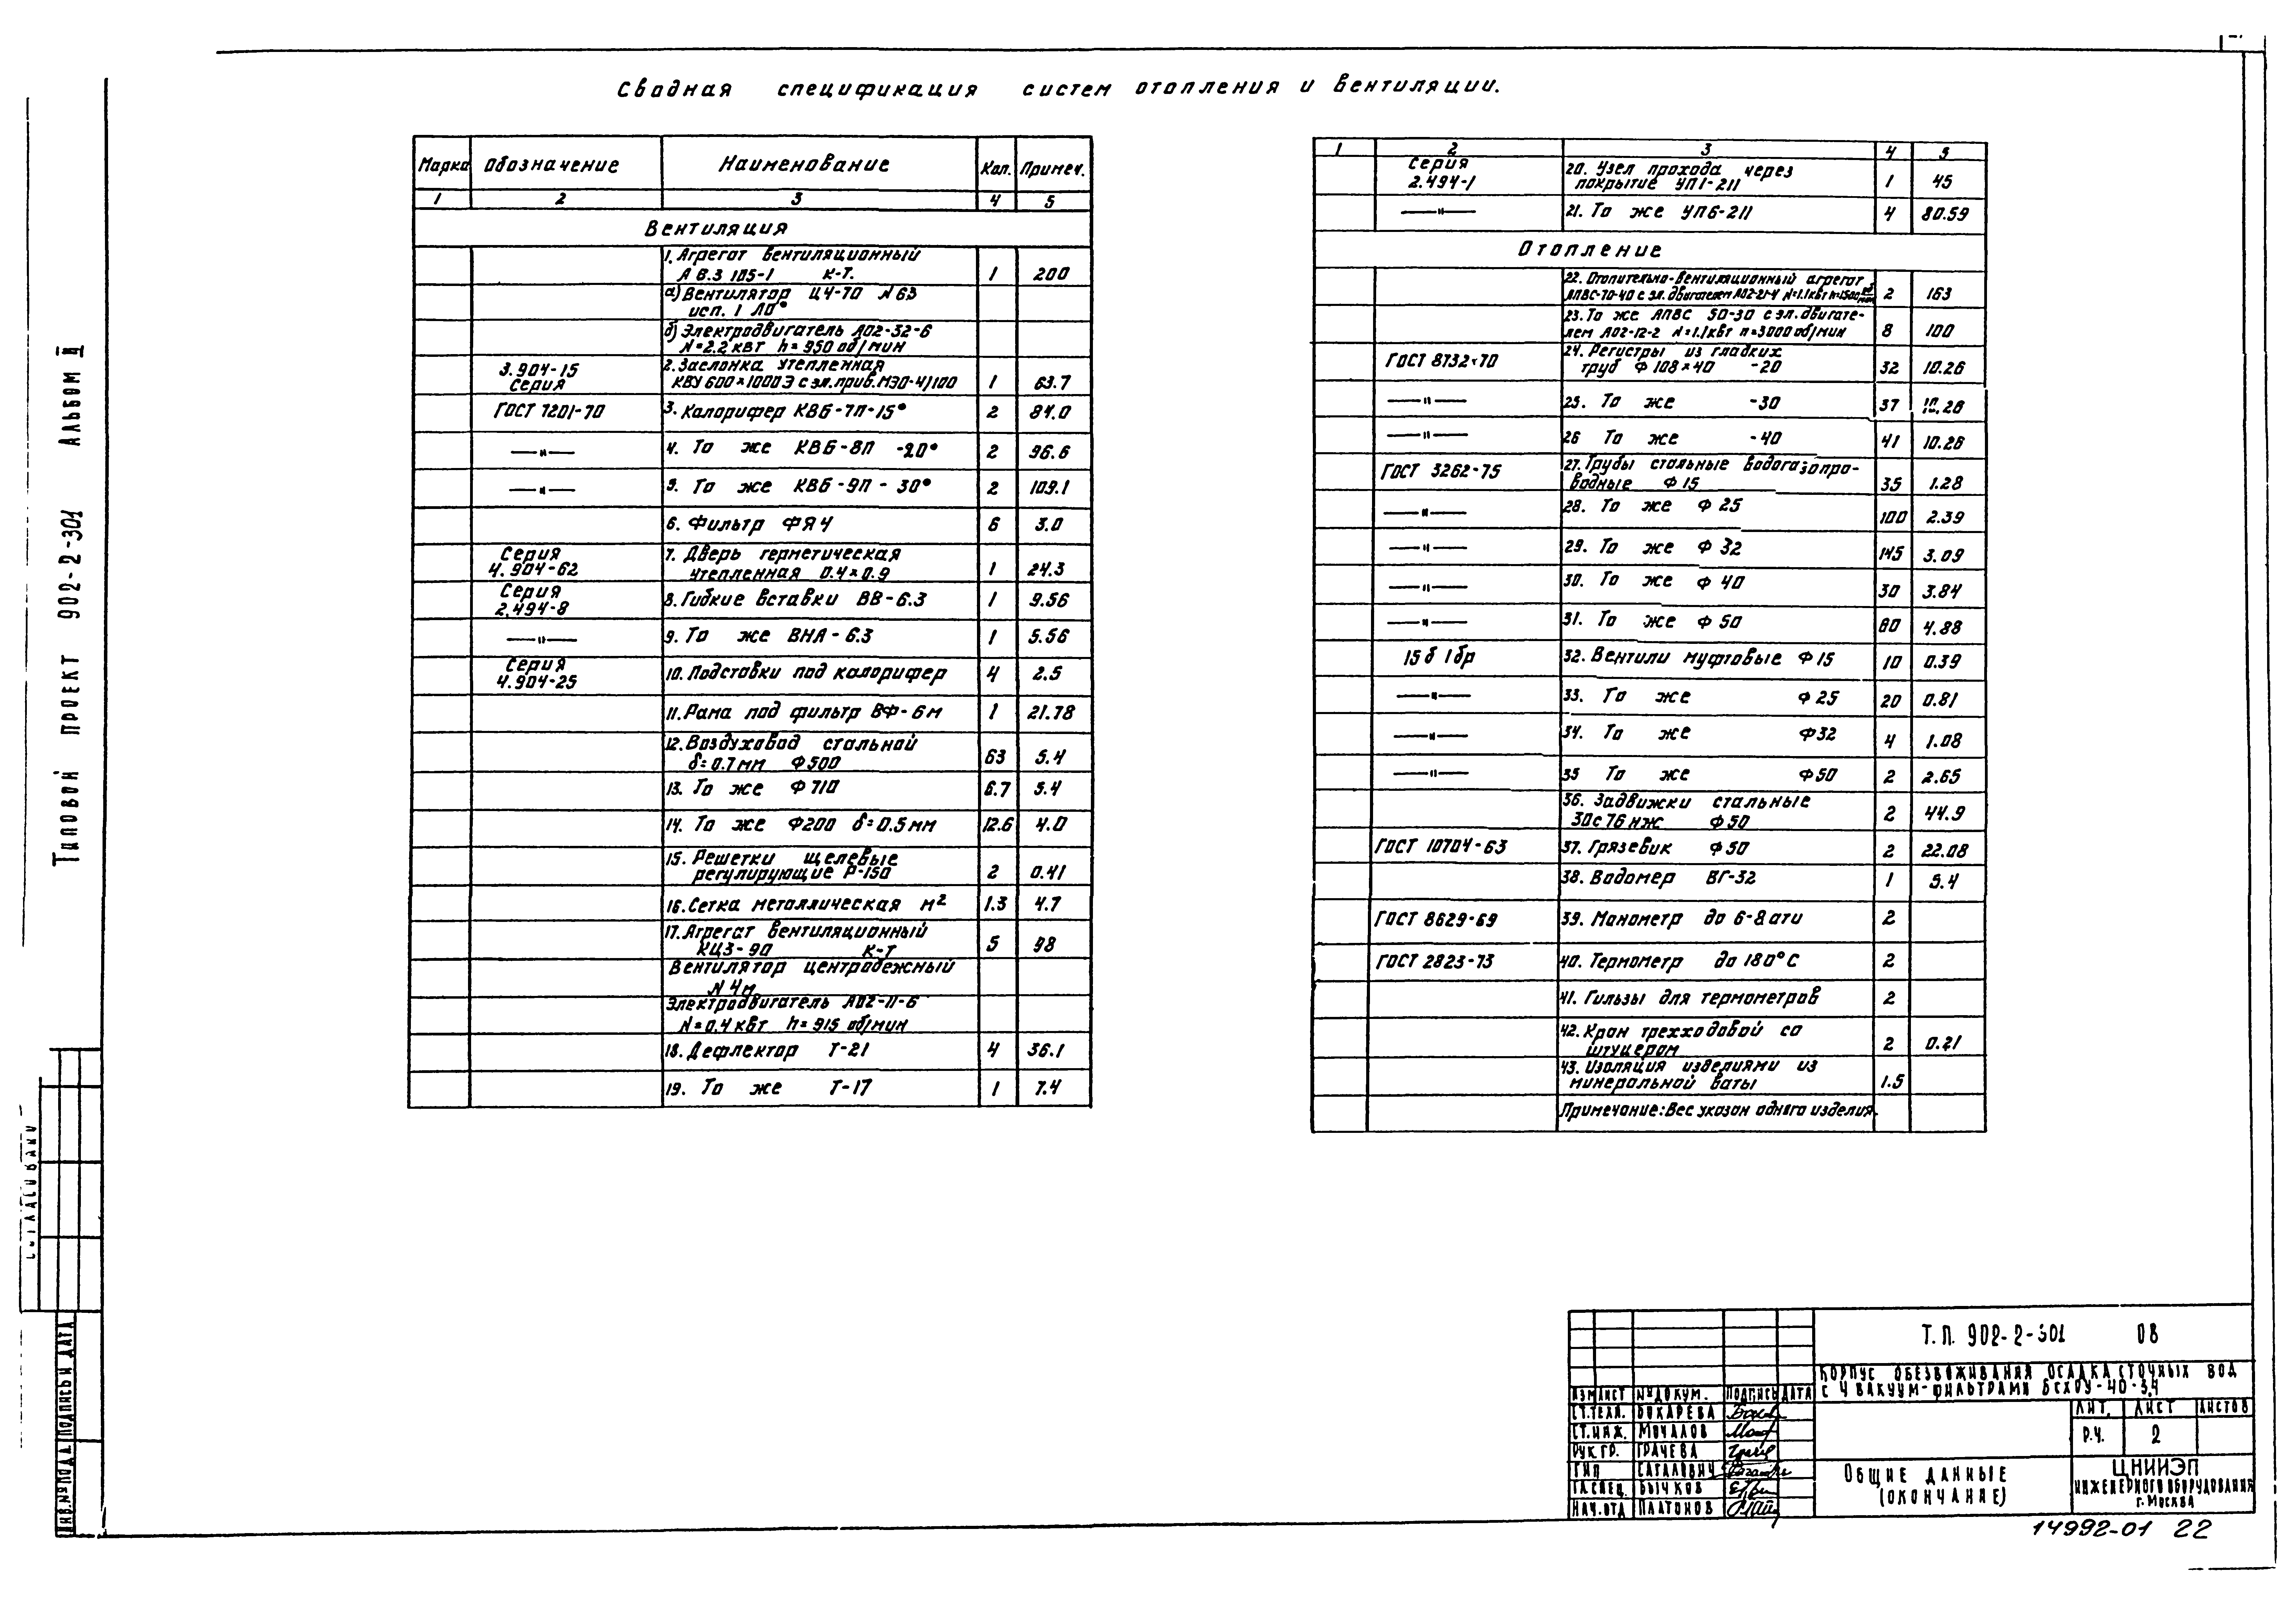 Сводная спецификация систем отопления и вентиляции.
Марка Обозначение Наименование Кол. Примеч.
1 2 3 4 5
Вентиляция
1. Агрегат вентиляционный
А 6.3 105-1 к-т. 1 200
а) Вентилятор Ц4-70 N63
исп. 1 Л0°
б) Электродвигатель АО2-32-6
N=2.2 квт h=950 об/мин
3.904-15 2. Заслонка утепленная
Серия КВУ 600×1000Э с эл.прив. МЭО-4/100 1 63.7
ГОСТ 7201-70 3. Калорифер КВБ-7П-15° 2 84.0
—"— 4. То же КВБ-8П -20° 2 96.6
—"— 5. То же КВБ-9П - 30° 2 109.1
6. Фильтр ФЯ4 6 3.0
Серия 7. Дверь герметическая
4.904-62 утепленная 0.4×0.9 1 24.3
Серия
2.494-8 8. Гибкие вставки ВВ-6.3 1 9.56
—"— 9. То же ВНА-6.3 1 5.56
Серия
4.904-25 10. Подставки под калорифер 4 2.5
11. Рама под фильтр ВФ-6м 1 21.78
12. Воздуховод стальной
δ=0.7мм Ф500 63 5.4
13. То же Ф710 6.7 5.4
14. То же Ф200 δ=0.5мм 12.6 4.0
15. Решетки щелевые
регулирующие Р-150 2 0.41
16. Сетка металлическая м² 1.3 4.7
17. Агрегат вентиляционный
КЦ3-90 к-т 5 98
Вентилятор центробежный
N 4м
Электродвигатель АО2-11-6
N=0.4 квт h=915 об/мин
18. Дефлектор Т-21 4 36.1
19. То же Т-17 1 7.4
1 2 3 4 5
Серия 20. Узел прохода через
2.494-1 покрытие УП1-211 1 45
—"— 21. То же УП6-211 4 80.59
Отопление
22. Отопительно-вентиляционный агрегат
АПВС-70-40 с эл. двигателем АО2-21-4 N=1.1квт h=1500 об/мин 2 163
23. То же АПВС 50-30 с эл. двигате-
лем АО2-12-2 N=1.1квт n=3000 об/мин 8 100
ГОСТ 8732-70 24. Регистры из гладких
труб Ф 108×40 -20 32 10.26
—"— 25. То же -30 37 10.26
—"— 26 То же -40 41 10.26
ГОСТ 3262-75 27. Трубы стальные водогазопро-
водные Ф 15 35 1.28
—"— 28. То же Ф 25 100 2.39
—"— 29. То же Ф 32 145 3.09
—"— 30. То же Ф 40 30 3.84
—"— 31. То же Ф 50 80 4.88
15 б 1 бр 32. Вентили муфтовые Ф15 10 0.39
—"— 33. То же Ф25 20 0.81
—"— 34. То же Ф32 4 1.08
—"— 35 То же Ф50 2 2.65
36. Задвижки стальные
30с 76 нж Ф50 2 44.9
ГОСТ 10704-63 37. Грязевик Ф50 2 22.08
38. Водомер ВГ-32 1 5.4
ГОСТ 8629-69 39. Манометр до 6-8 ати 2
ГОСТ 2823-73 40. Термометр до 180°С 2
41. Гильзы для термометров 2
42. Кран трехходовой со
штуцером 2 0.21
43. Изоляция изделиями из
минеральной ваты 1.5
Примечание: Вес указан одного изделия.
Типовой проект 902-2-301 Альбом
СОГЛАСОВАНО
ИНВ.№ПОДЛ ПОДПИСЬ И ДАТА
Т.П. 902-2-301 08
КОРПУС ОБЕЗВОЖИВАНИЯ ОСАДКА СТОЧНЫХ ВОД
С 4 ВАКУУМ-ФИЛЬТРАМИ БСХОУ-40-3,4
ИЗМ ЛИСТ №ДОКУМ. ПОДПИСЬ ДАТА
СТ.ТЕХН. БОКАРЕВА
СТ.ИНЖ. МОЧАЛОВ
РУК.ГР. ГРАЧЕВА
ГИП САГАЛОВИЧ
ГЛ.СПЕЦ. БЫЧКОВ
НАЧ.ОТД ПЛАТОНОВ
ЛИТ. ЛИСТ ЛИСТОВ
Р.Ч. 2
ОБЩИЕ ДАННЫЕ
(ОКОНЧАНИЕ)
ЦНИИЭП
ИНЖЕНЕРНОГО ОБОРУДОВАНИЯ
Г. МОСКВА
14992-01 22